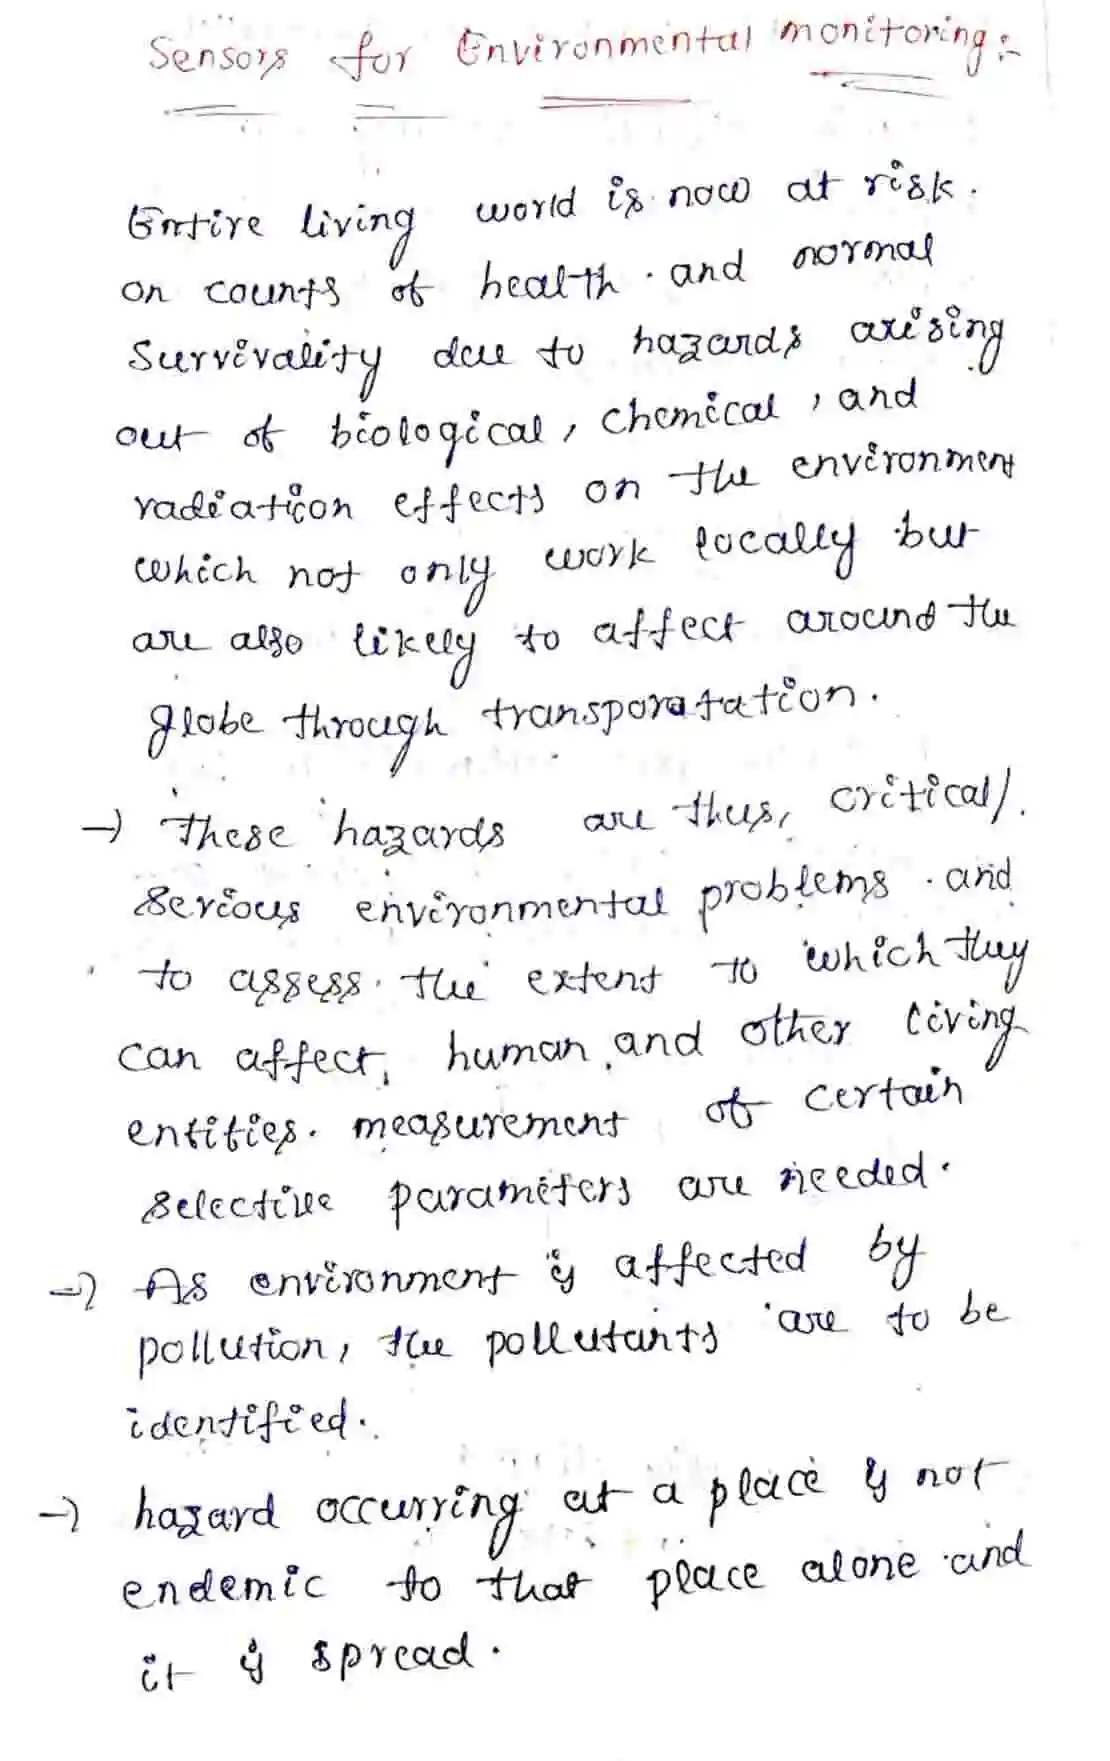 Sensors for Environmental monitoring :-
Entire living world is now at risk.
on counts of health and normal
Survivality due to hazards arising
out of biological, chemical, and
radiation effects on the environment
which not only work locally but
are also likely to affect around the
globe through transporatation.
→ These hazards are thus, critical/.
Serious environmental problems and
to assess the extent to which they
can affect, human and other living
entities. measurement of certain
selective parameters are needed.
→ As environment is affected by
pollution, the pollutants are to be
identified.
→ hazard occurring at a place is not
endemic to that place alone and
it is spread.